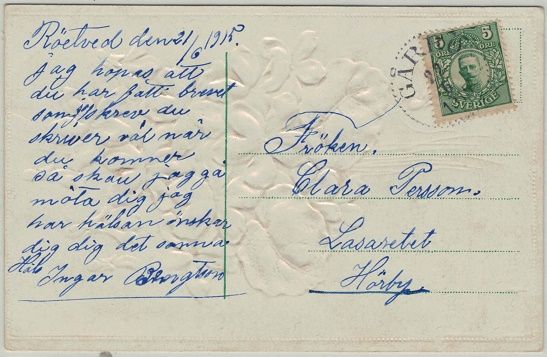 Röetved den 21/6 1915.
jag hopas att
du har fått brevet
som jag skrev du
skriver väl när
du kommer
så skall jag gå
möta dig jag
har hälsan önskar
dig dig det samma.
Häls
Ingar Bengtson
Fröken.
Clara Persson.
Lasaretet
Hörby.
GÅR
5 5
ÖRE ÖRE
SVERIGE